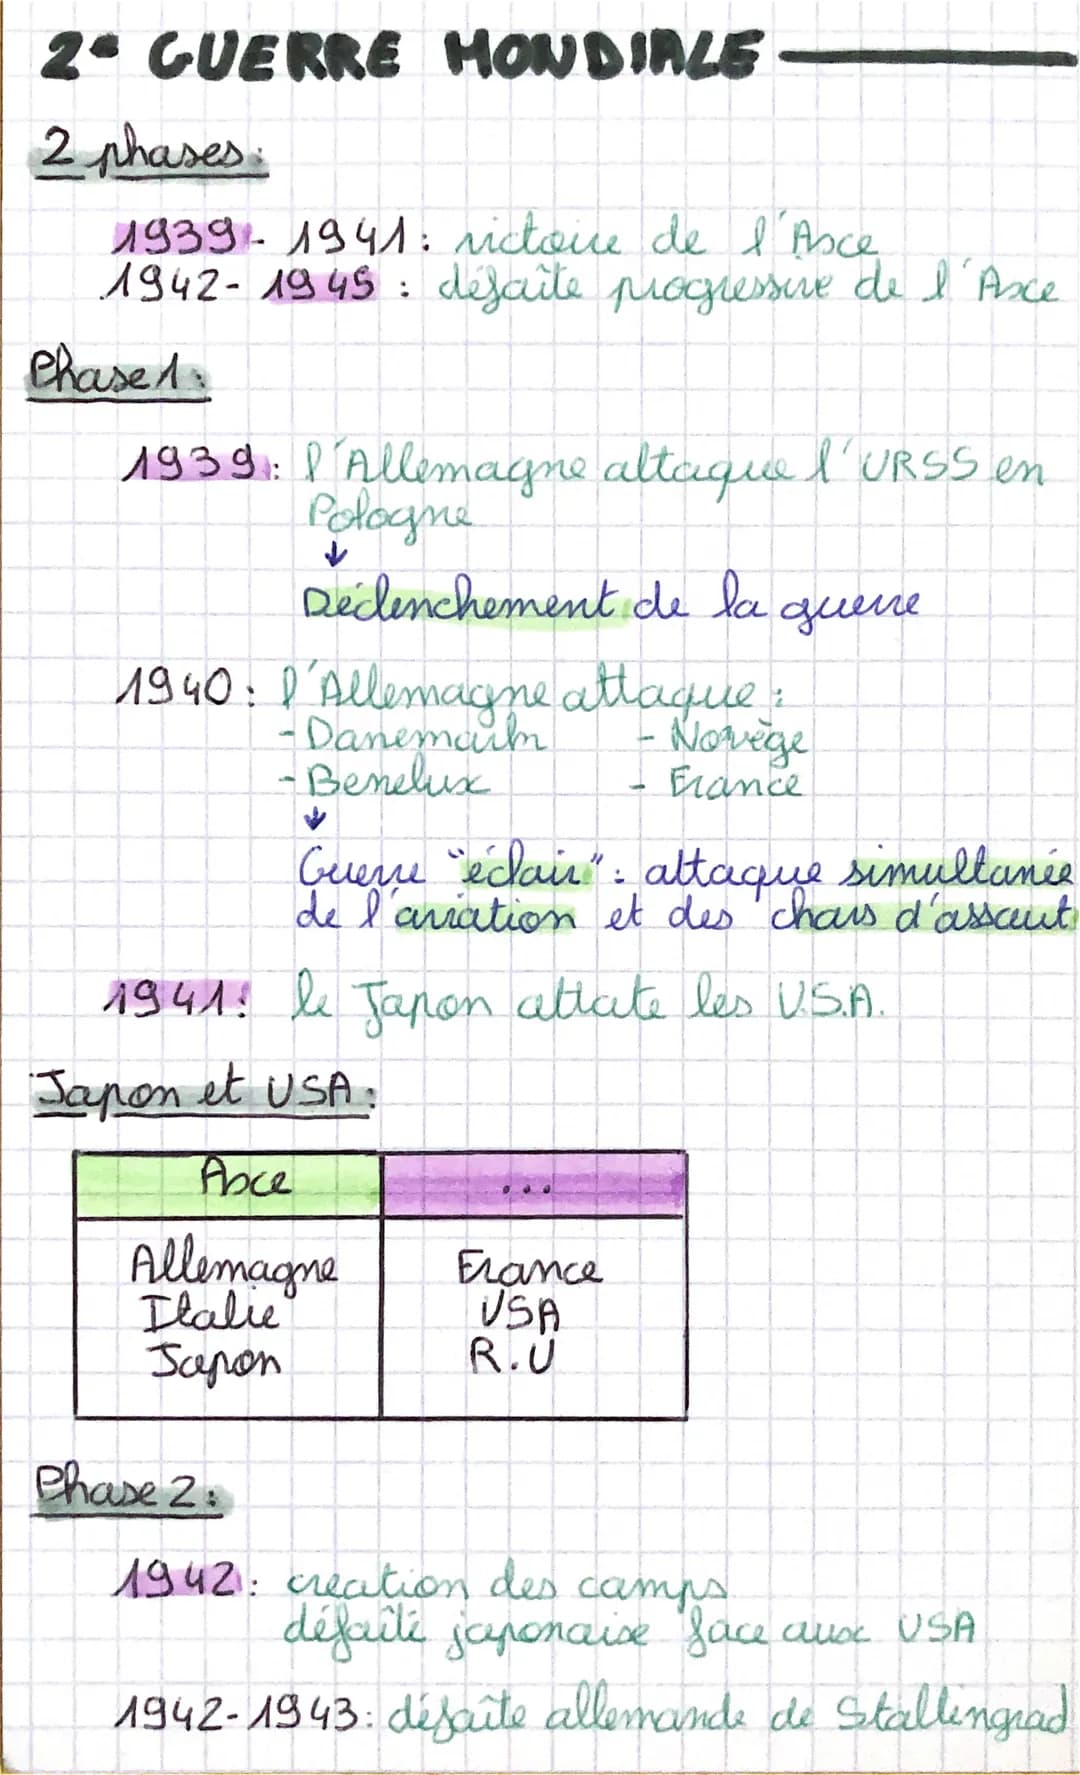 2e GUERRE MONDIALE
2 phases:
1939 - 1941: victoire de l'Axe
1942 - 1945 : défaite progressive de l'Axe
Phase 1:
1939: l'Allemagne attaque l'URSS en
Pologne
↓
Déclenchement de la guerre
1940: l'Allemagne attaque :
- Danemark - Norvège
- Benelux - France
↓
Guerre "éclair" : attaque simultanée
de l'aviation et des chars d'assaut
1941: le Japon attate les U.S.A.
Japon et USA:
Axe ...
Allemagne France
Italie USA
Japon R.U
Phase 2:
1942: creation des camps
défaite japonaise face aux USA
1942-1943: défaîte allemande de Stallingrad